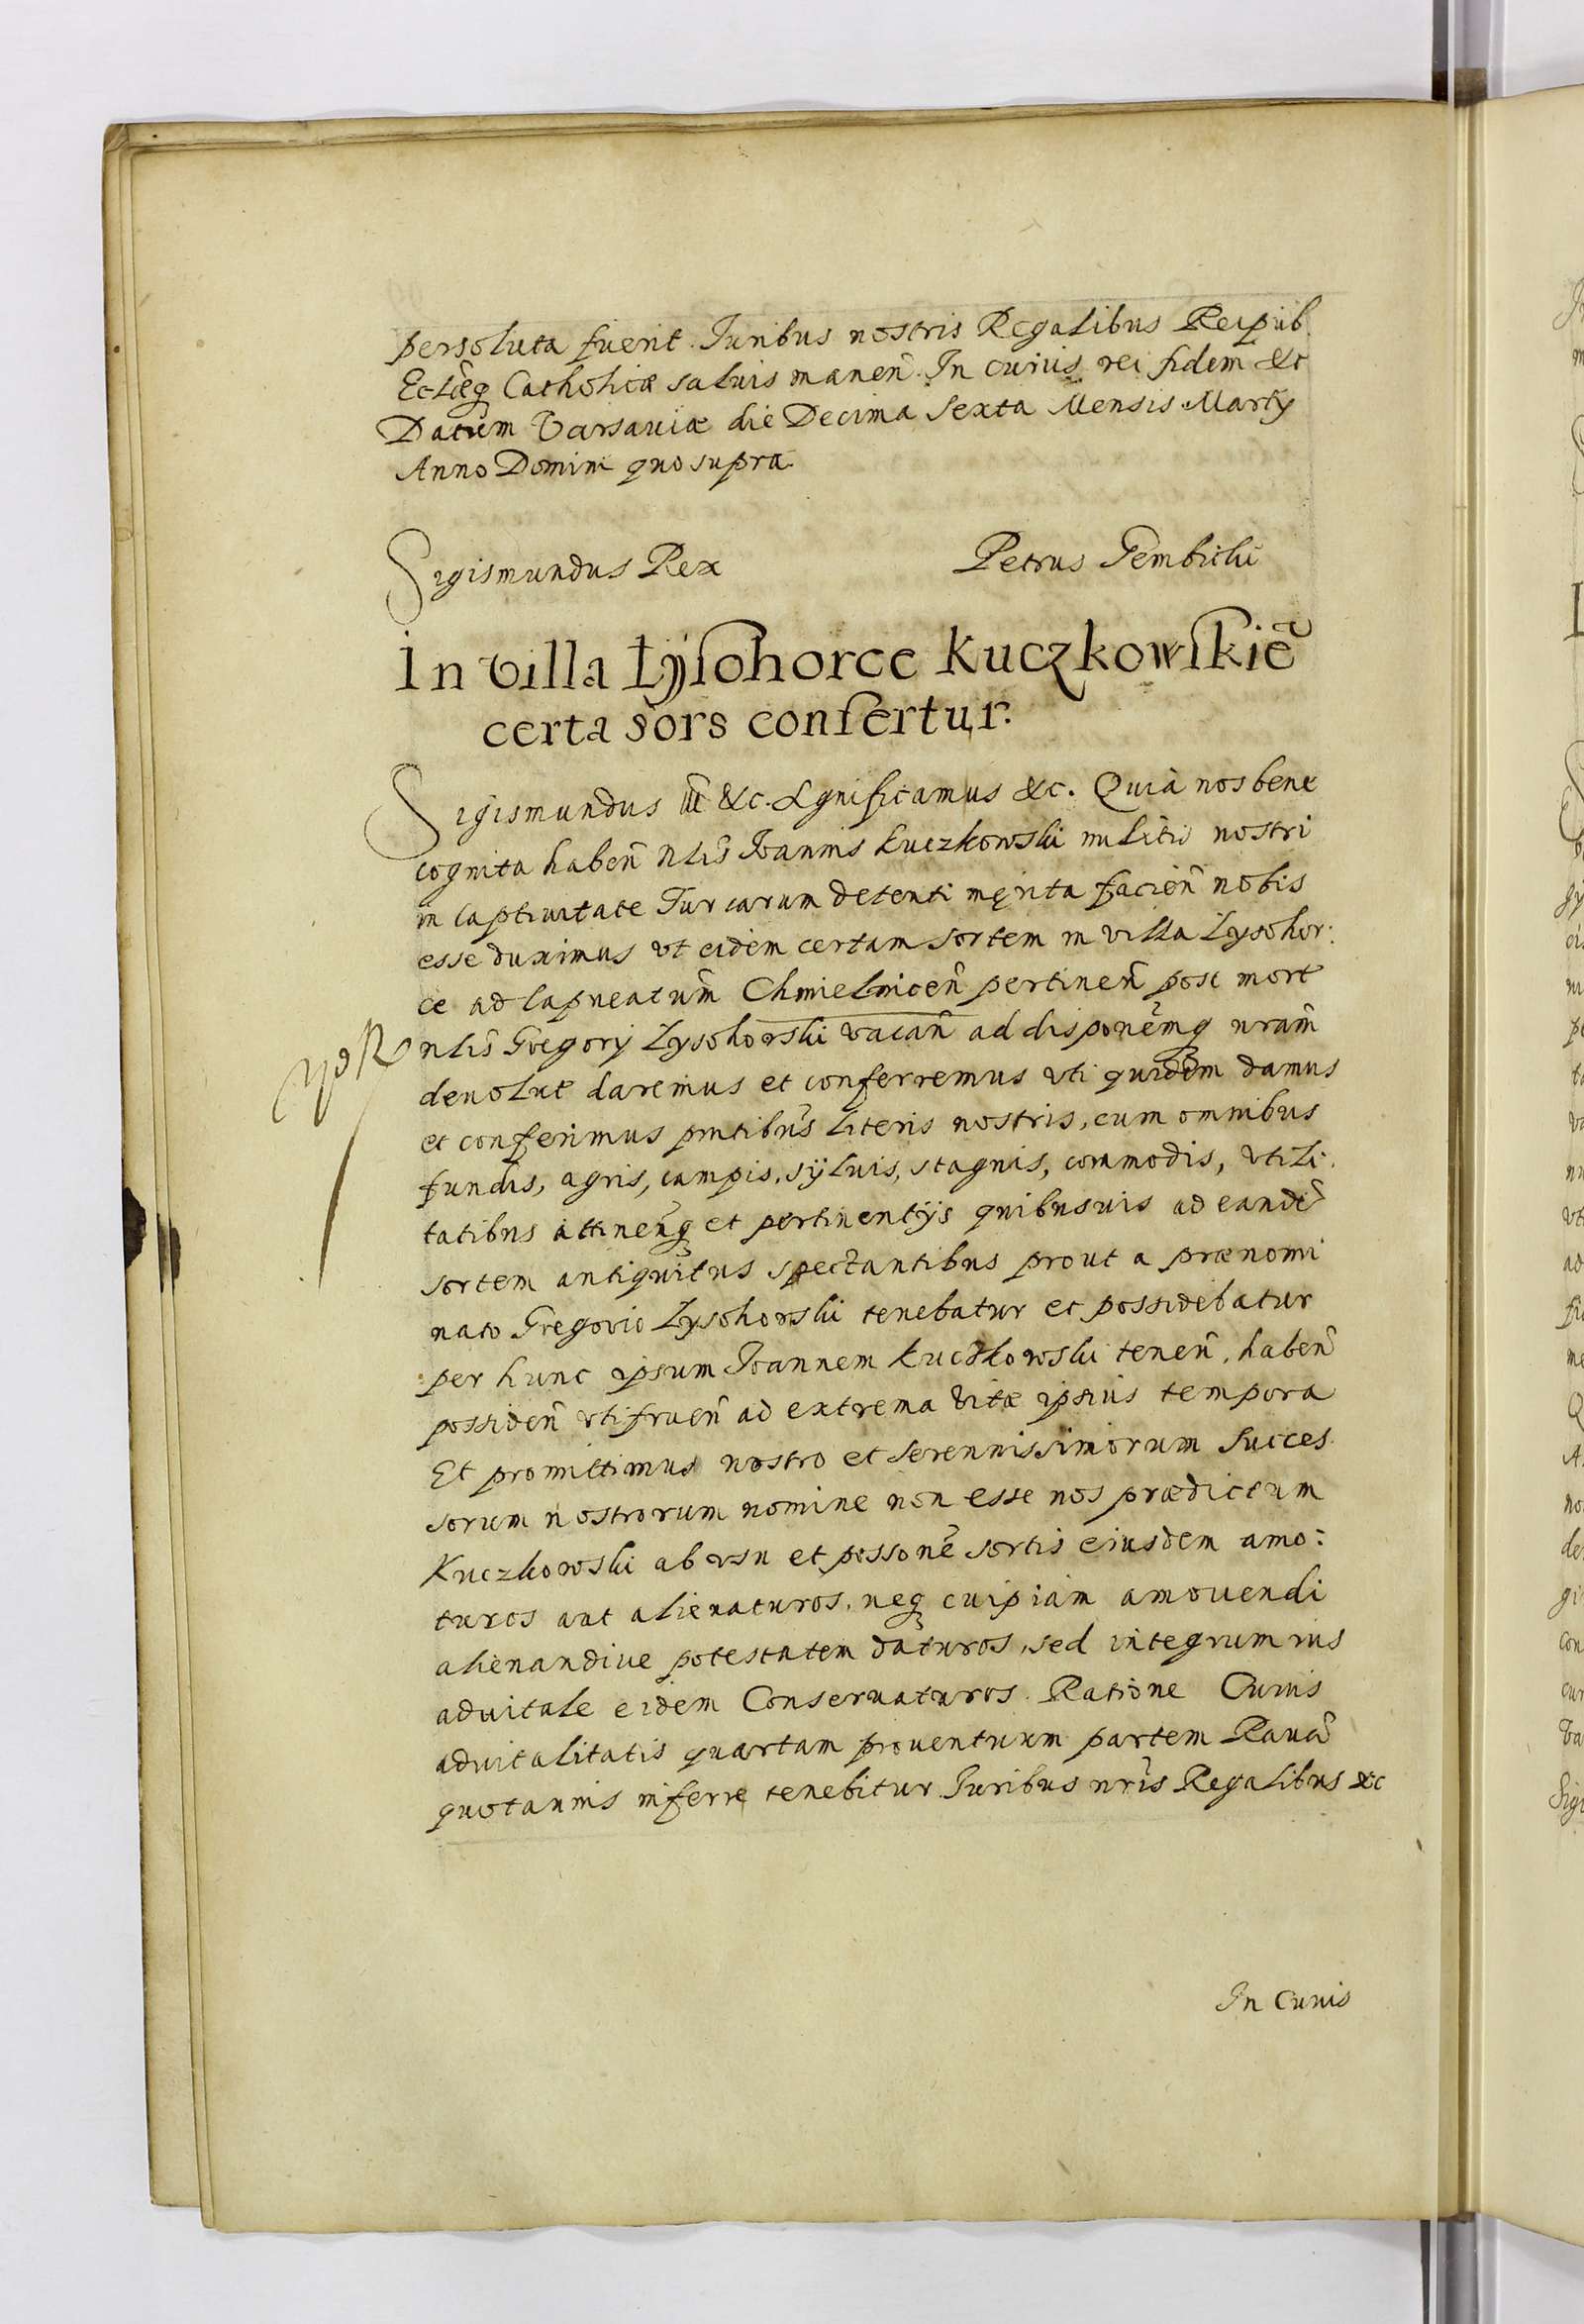 persoluta fuerit. Iuribus nostris Regalibus Reipub.
Eclæq Catholicæ saluis manen̄. In cuius rei fidem &c
Datum Varsauiæ die Decima Sexta Mensis Martÿ
Anno Domini quo supra.
Sigismundus Rex
Petrus Gembicki
In villa Łÿsohorce Kuczkowskiē
certa sors confertur.
Sigismundus III &c. Significamus &c. Quia nos bene
cognita haben̄ Nlis̄ Ioannis Kuczkowski militis nostri
in captiuitate Turcarum detenti męrita facien̄ nobis
esse duximus vt eidem certam sortem in villa Lysohor:
ce ad Capneatum̄ Chmielnicen̄ pertinen̄ post mort
nlis̄ Gregorÿ Lysohorski vacan̄ ad disponēmq nram̄
deuolut daremus et conferremus vti quidem damus
et conferimus pntibus̄ literis nostris, cum omnibus
fundis, agris, campis, sÿluis, stagnis, commodis, vtili.
tatibus attinen̄q et pertinentÿs quibusuis ad eandē
sortem antiquitus spectantibus prout a prænomi
nato Gregorio Lysohorski tenebatur et possidebatur
per hunc ipsum Ioannem Kuczkowski tenen̄, haben̄
possiden̄ vtifruen̄ ad extrema vitæ ipsius tempora
Et promittimus nostro et Serennissimorum Succes.
sorum nostrorum nomine non esse nos prædictum
Kuczkowski ab vsu et possonē sortis eiusdem amo:
turos aut alienaturos, neq cuipiam amouendi
alienandiue potestatem daturos, sed integrum ius
aduitale eidem Conseruaturos. Ratione Cuius
aduitalitatis quartam prouentuum partem Rauā
quotannis inferre tenebitur. Iuribus nrīs Regalibus &c
In Cuius